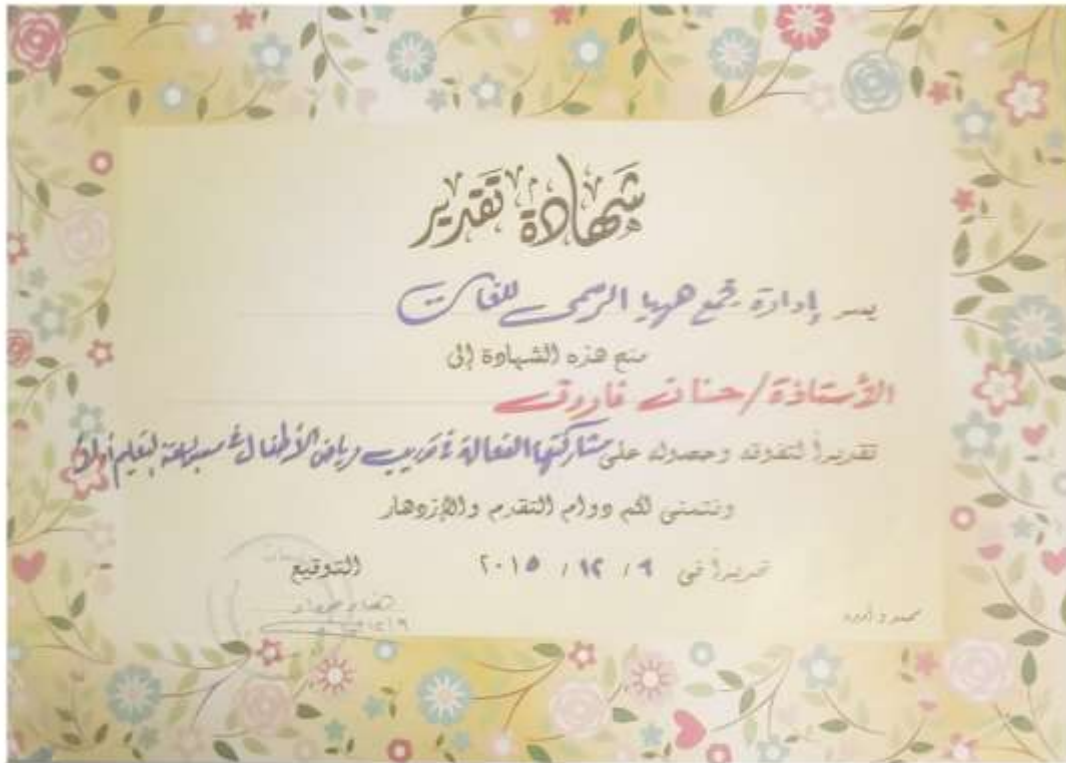 شهادة تقدير
يسر إدارة مجمع ههيا الرسمى للغات
منح هذه الشهادة إلى
الأستاذة/ حنان فاروق
تقديراً لتفوقه وحصوله على مشاركتها الفعالة فى تدريب رياض الأطفال لتعليم
ونتمنى لكم دوام التقدم والإزدهار
تحريراً فى ٩ / ١٢ / ٢٠١٥
التوقيع